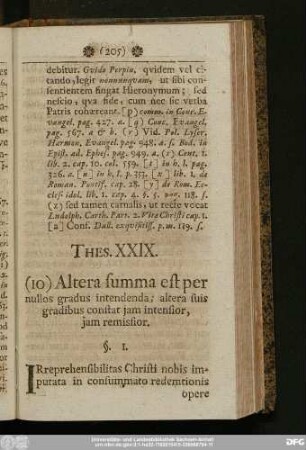 (205)
debitur. Guido Perpin. qvidem vel ci-
tando, legit nonnunqvam, ut sibi con-
sentientem fingat Hieronymum; sed
nescio, qva fide, cum nec sic verba
Patris cohæreant. [p) comm. in Conc. E-
vangel. pag. 427. a. [q) Conc. Evangel.
pag. 567. a & b. (r) Vid. Pol. Lyser.
Harmon. Evangel. pag. 948. a. s. Bod. in
Epist. ad Ephes. pag. 949. a. (s) Cent. 1.
lib. 2. cap. 10. col. 559. [t] in h. l. pag.
326. a. [u] in h. l. p. 353. [x] lib. 1. de
Roman. Pontif. cap. 28. [y] de Rom. Ec-
cles. idol. lib. 1. cap. 4. §. 5. num. 118. s.
(z) sed tamen carnalis, ut recte vocat
Ludolph. Carth. Part. 2. Vitæ Christi cap. 1.
[a] Conf. Dall. exqvisitiss. p. m. 119. s.
THES. XXIX.
(10) Altera summa est per
nullos gradus intendenda; altera suis
gradibus constat jam intensior,
jam remissior.
§. I.
IRreprehensibilitas Christi nobis im-
putata in consummato redemtionis
opere